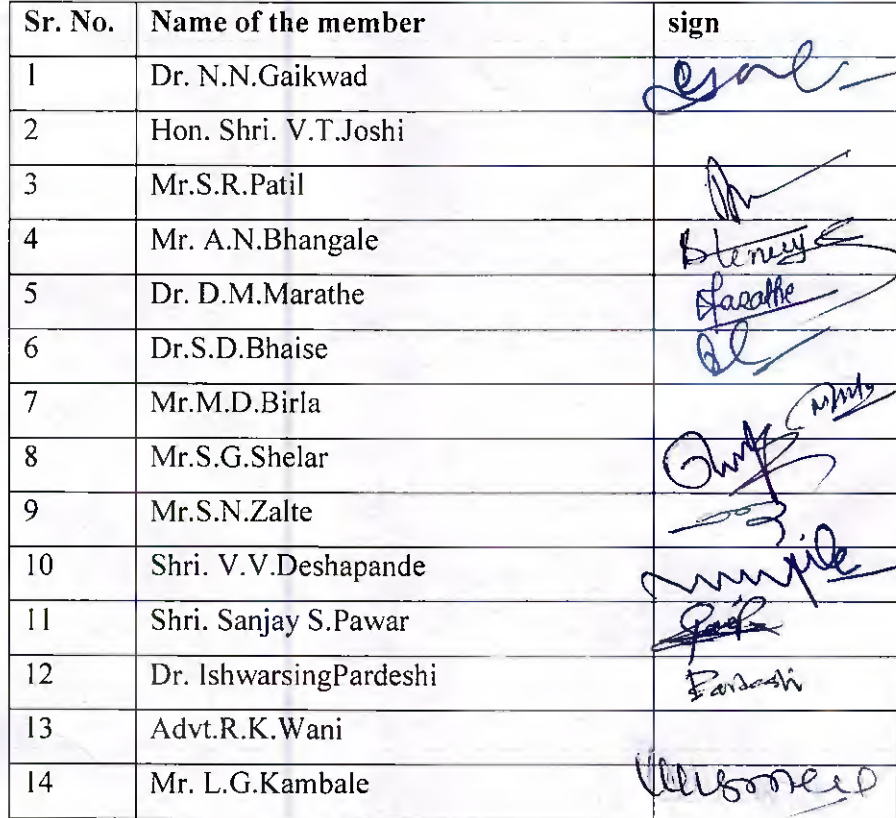 Sr. No. Name of the member sign
1 Dr. N.N.Gaikwad
2 Hon. Shri. V.T.Joshi
3 Mr.S.R.Patil
4 Mr. A.N.Bhangale
5 Dr. D.M.Marathe Marathe
6 Dr.S.D.Bhaise
7 Mr.M.D.Birla
8 Mr.S.G.Shelar
9 Mr.S.N.Zalte
10 Shri. V.V.Deshapande
11 Shri. Sanjay S.Pawar
12 Dr. IshwarsingPardeshi Pardeshi
13 Advt.R.K.Wani
14 Mr. L.G.Kambale